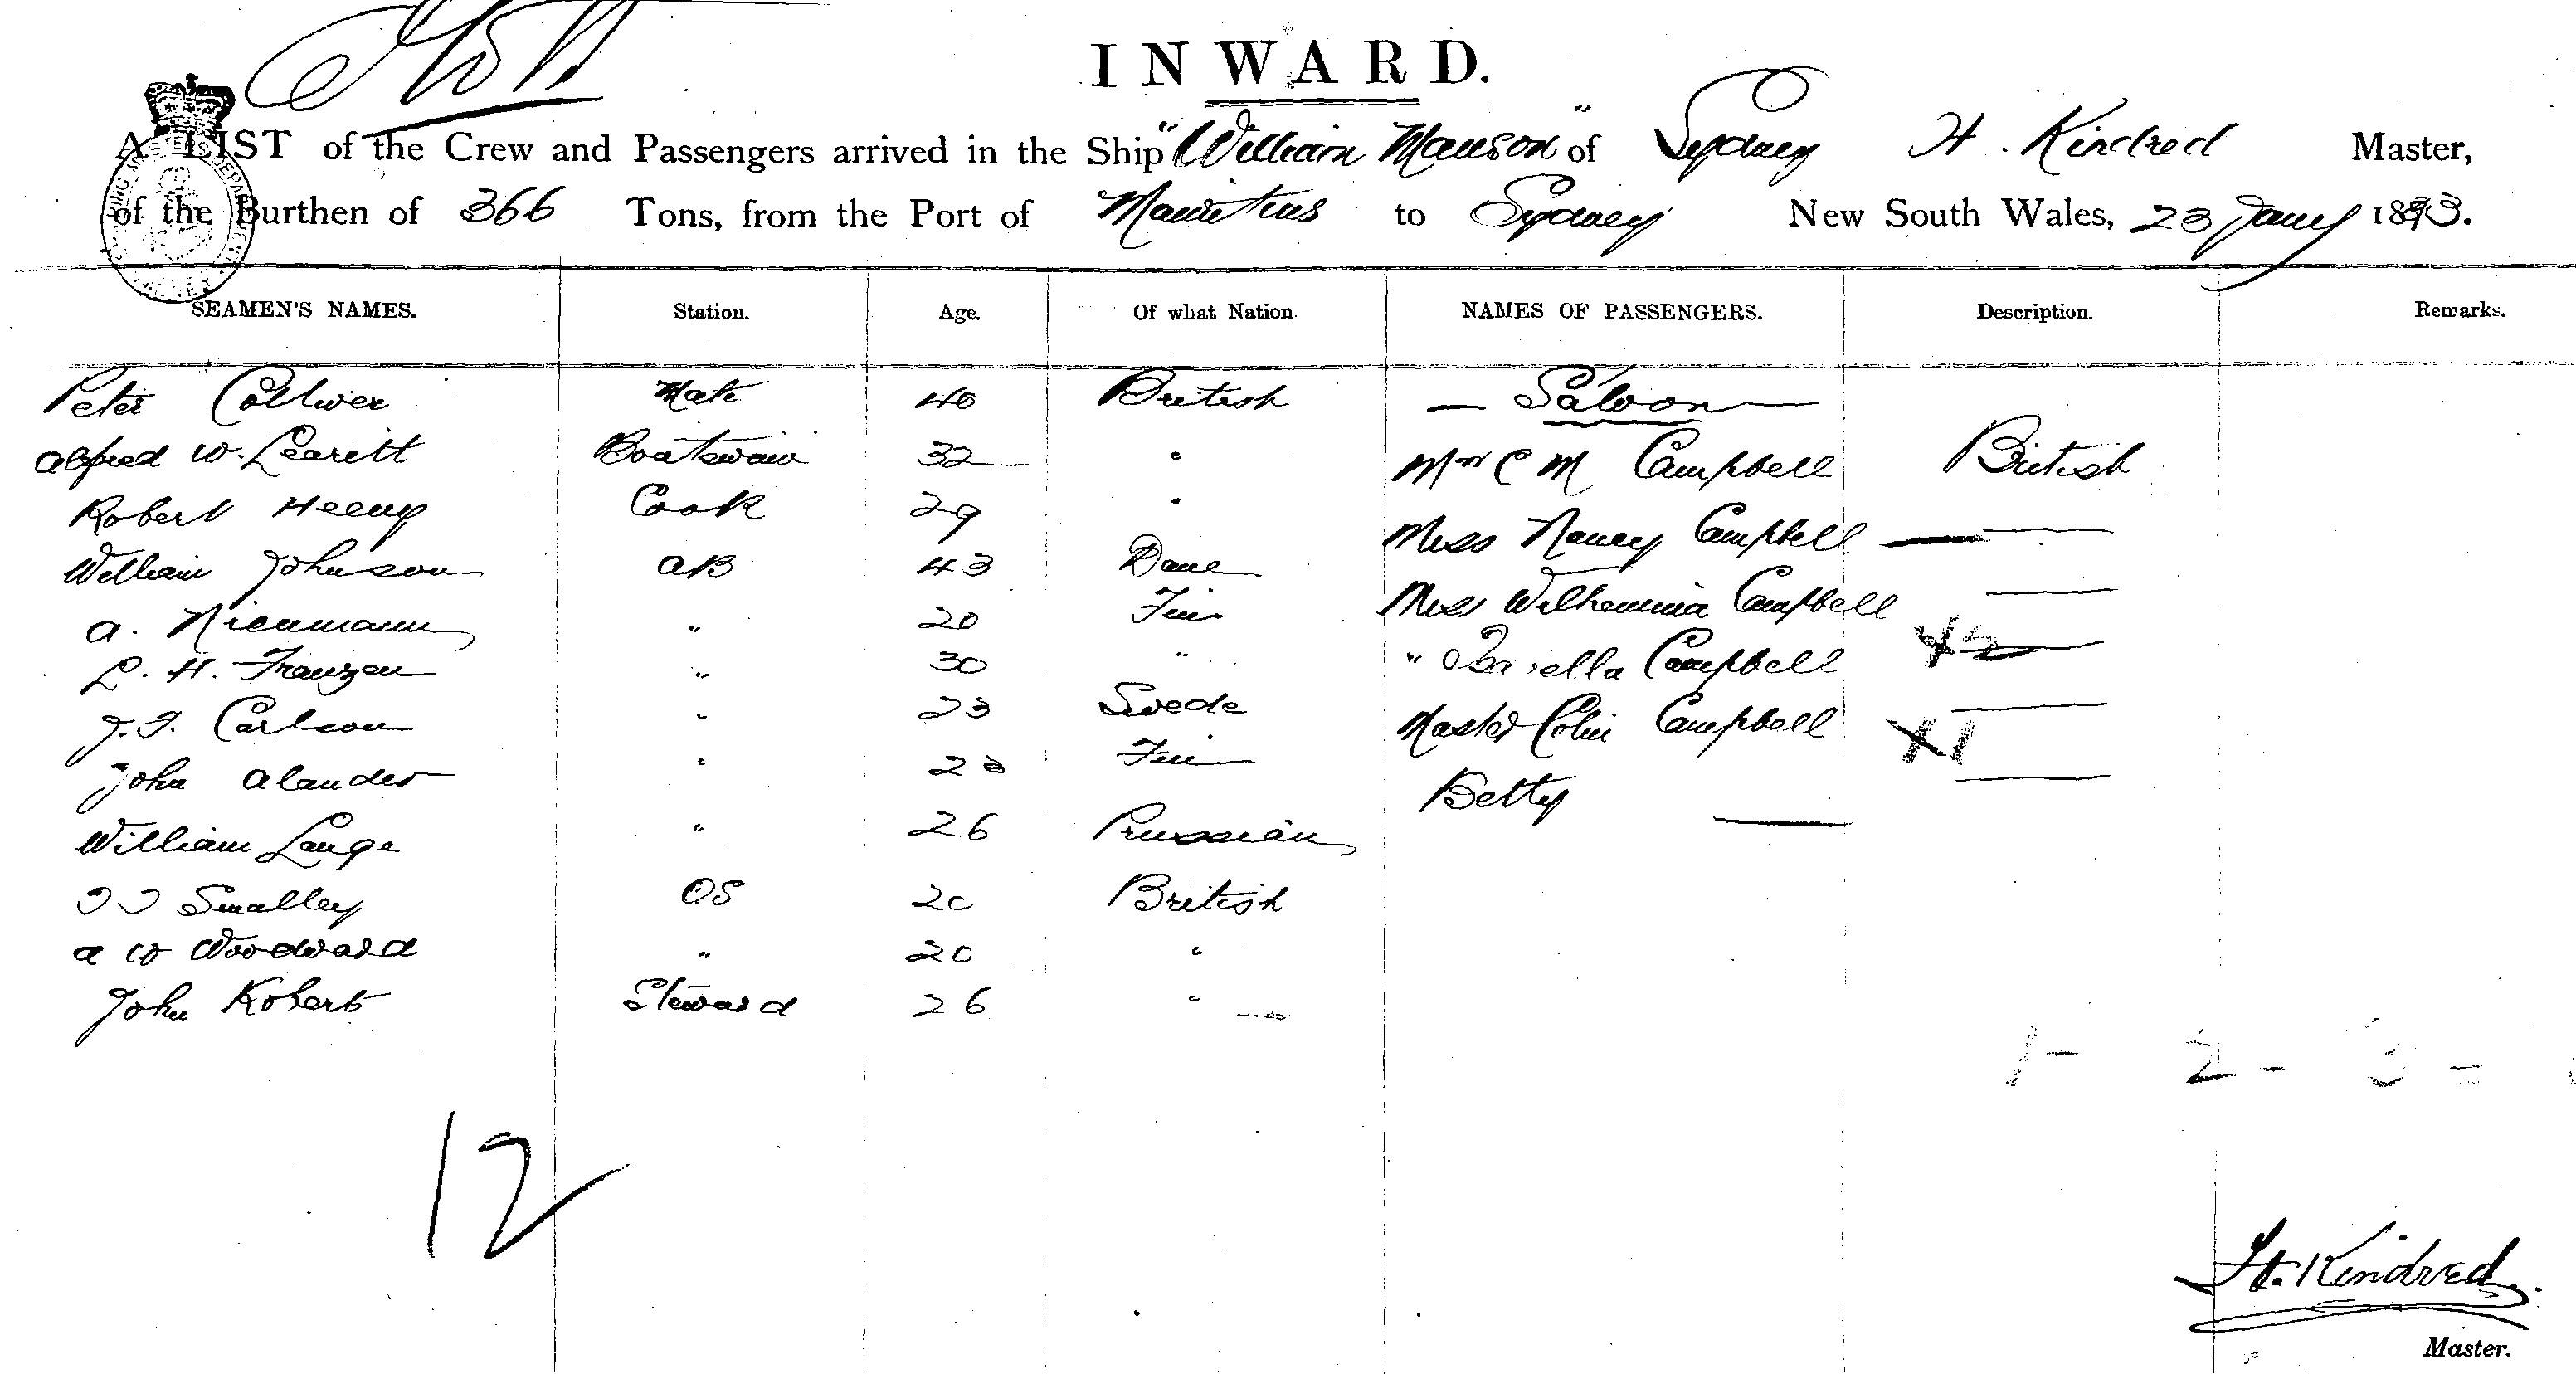 INWARD.
A LIST of the Crew and Passengers arrived in the Ship "William Manson" of Sydney H. Kindred Master,
of the Burthen of 366 Tons, from the Port of Mauritius to Sydney New South Wales, 23 Jany 1893.
SEAMEN'S NAMES. Station. Age. Of what Nation. NAMES OF PASSENGERS. Description. Remarks.
Peter Mate 40 British — Saloon —
Alfred W. Learitt Boatswain 32 " Mrs C M Campbell British
Robert Cook 29 " Miss Nancy Campbell —
William Johnson AB 43 Dane Miss Wilhemina Campbell —
A. Nienmann " 20 Fin " Campbell —
L. H. Franzen " 30 " Master Colin Campbell —
J. F. Carlson " 23 Swede Betty — —
John Alander " Fin
William Lange " 26 Prussian
Smalley OS 20 British
A W Woodward " 20 "
John Robert Steward 26 "
1 - 2 - 3 -
12
H. Kindred.
Master.